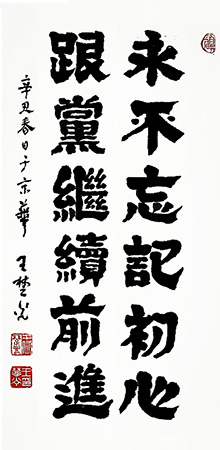 永不忘記初心
跟黨繼續前進
辛丑春日于京華